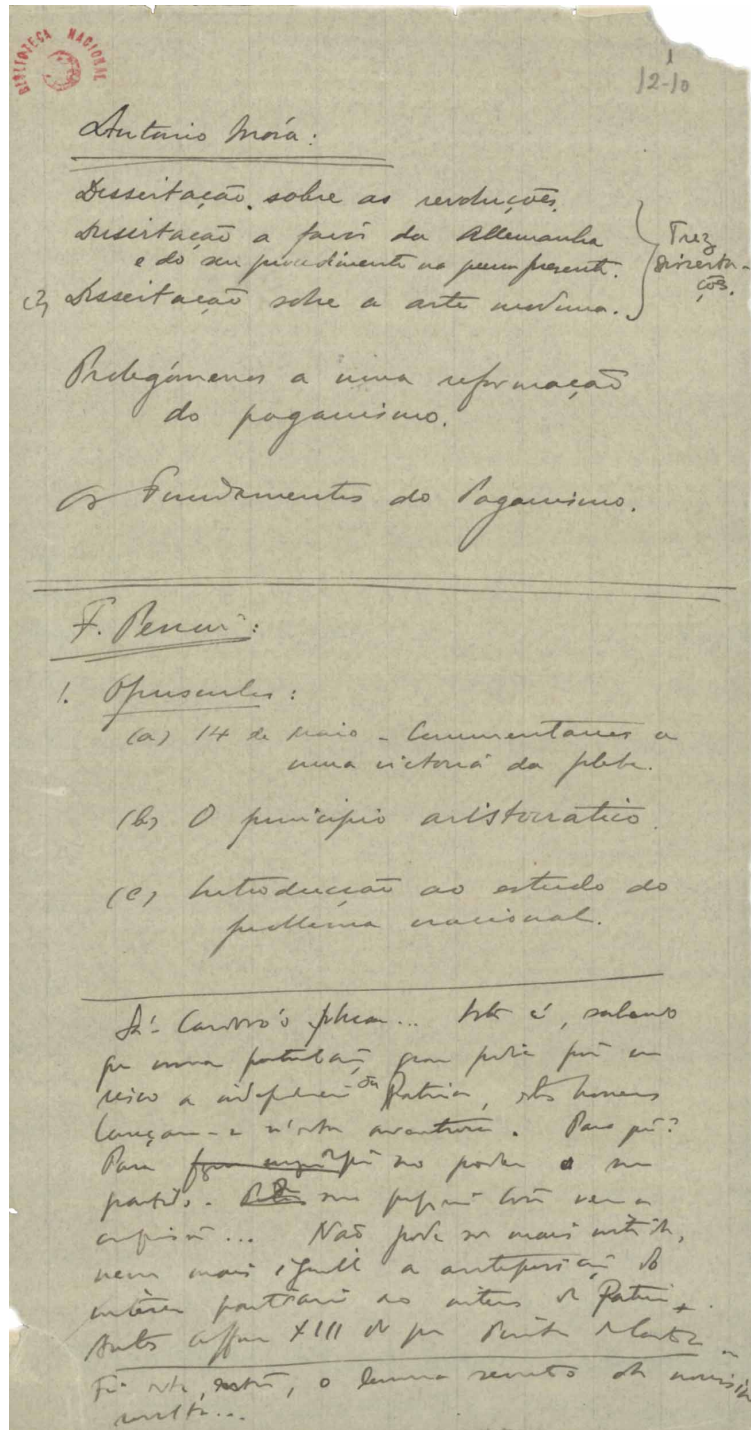 BIBLIOTECA NACIONAL
1
12-10
Antonio Móra:
Dissertação sobre as revoluções.
Dissertação a favôr da Allemanha
e do seu procedimento na guerra presente.
(?) Dissertação sobre a arte moderna.
Trez
Disserta-
ções.
Prolegómenos a uma reformação
do paganismo.
Os Fundamentos do Paganismo.
F. Pessoa:
1. Opusculos:
(a) 14 de Maio - Commentarios a
uma victoria da plebe.
(b) O principio aristocratico.
(c) Introducção ao estudo do
problema nacional.
Sá-Cardoso ... Isto é, sabendo
que uma perturbação grave podia pôr em
risco a independencia da Patria, estes homens
lançam-se n'esta aventura. Para quê?
Para pôr no poder o seu
partido.
... Não pode ser mais nitida,
nem mais a anteposição do
interesse partidario ao interesse da Patria.
Antes Affonso XIII do que
Foi este, o lemma secreto da
revolta...